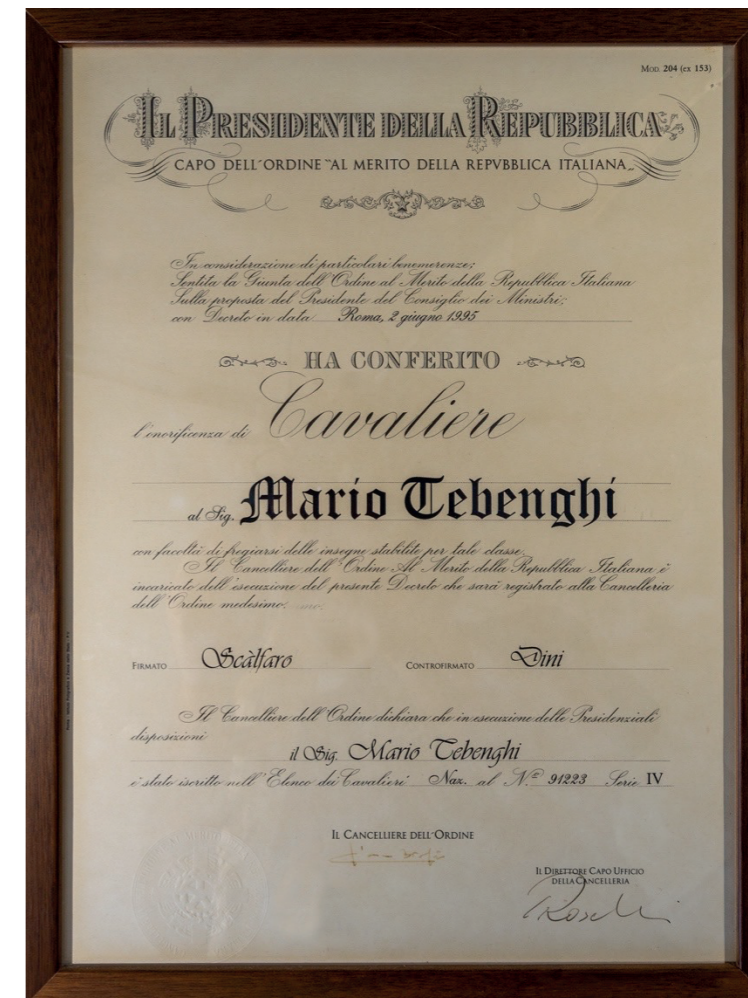 Mod. 204 (ex 153)
IL PRESIDENTE DELLA REPUBBLICA
CAPO DELL'ORDINE "AL MERITO DELLA REPVBBLICA ITALIANA„
In considerazione di particolari benemerenze;
Sentita la Giunta dell'Ordine al Merito della Repubblica Italiana
Sulla proposta del Presidente del Consiglio dei Ministri;
con Decreto in data Roma, 2 giugno 1995
HA CONFERITO
l'onorificenza di Cavaliere
al Sig. Mario Tebenghi
con facoltà di fregiarsi delle insegne stabilite per tale classe.
Il Cancelliere dell'Ordine Al Merito della Repubblica Italiana è
incaricato dell'esecuzione del presente Decreto che sarà registrato alla Cancelleria
dell'Ordine medesimo.
FIRMATO Scàlfaro CONTROFIRMATO Dini
Il Cancelliere dell'Ordine dichiara che in esecuzione delle Presidenziali
disposizioni
il Sig. Mario Tebenghi
è stato iscritto nell'Elenco dei Cavalieri Naz. al N.º 91223 Serie IV
IL CANCELLIERE DELL'ORDINE
IL DIRETTORE CAPO UFFICIO
DELLA CANCELLERIA